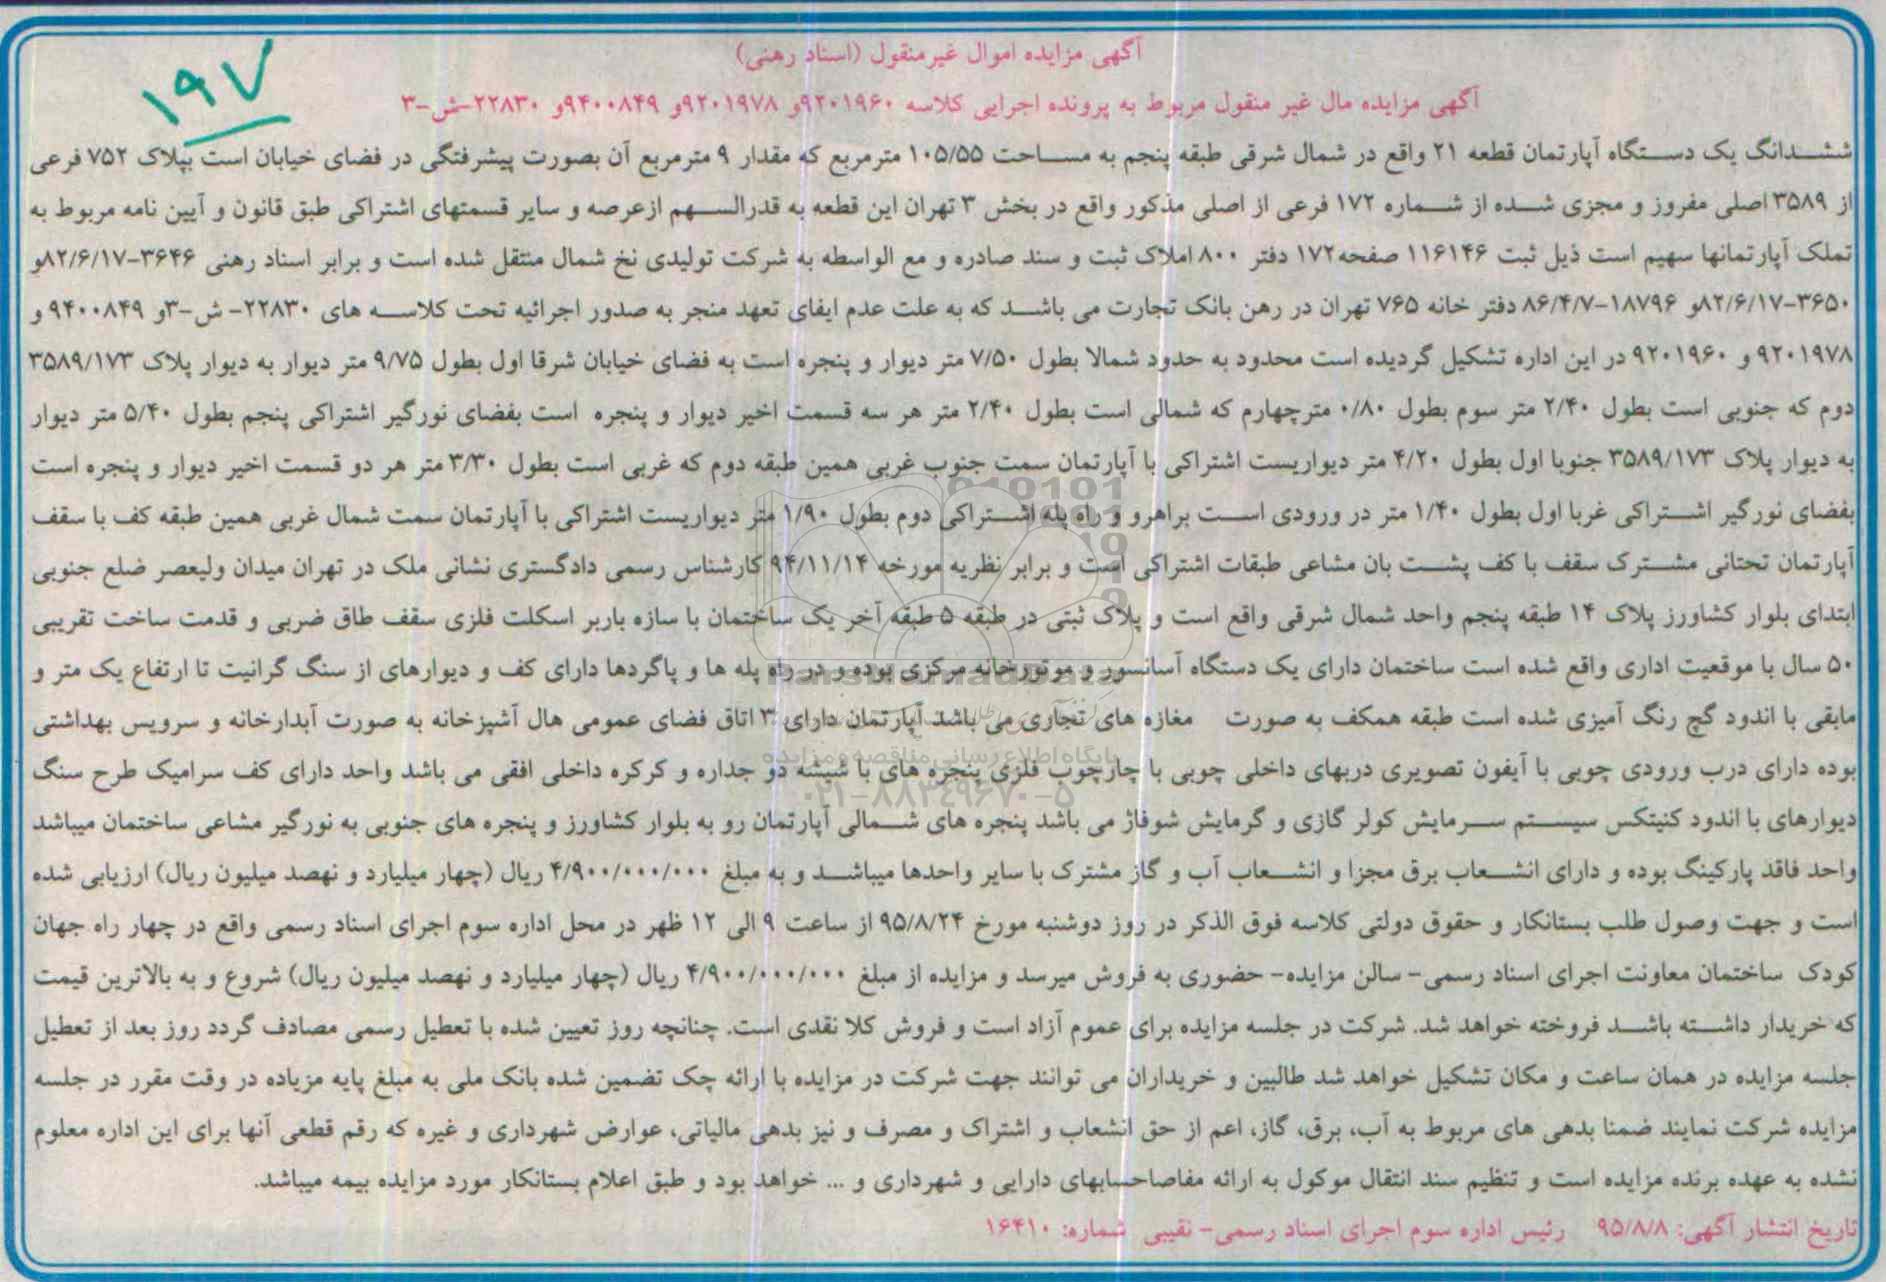 ۱۹۷
آگهی مزایده اموال غیرمنقول (اسناد رهنی)
آگهی مزایده مال غیر منقول مربوط به پرونده اجرایی کلاسه ۹۲۰۱۹۶۰و ۹۲۰۱۹۷۸و ۹۴۰۰۸۴۹و ۲۲۸۳۰-ش-۳
ششدانگ یک دستگاه آپارتمان قطعه ۲۱ واقع در شمال شرقی طبقه پنجم به مساحت ۱۰۵/۵۵ مترمربع که مقدار ۹ مترمربع آن بصورت پیشرفتگی در فضای خیابان است بپلاک ۷۵۲ فرعی
از ۳۵۸۹ اصلی مفروز و مجزی شده از شماره ۱۷۲ فرعی از اصلی مذکور واقع در بخش ۳ تهران این قطعه به قدرالسهم ازعرصه و سایر قسمتهای اشتراکی طبق قانون و آیین نامه مربوط به
تملک آپارتمانها سهیم است ذیل ثبت ۱۱۶۱۴۶ صفحه۱۷۲ دفتر ۸۰۰ املاک ثبت و سند صادره و مع الواسطه به شرکت تولیدی نخ شمال منتقل شده است و برابر اسناد رهنی ۳۶۴۶-۸۲/۶/۱۷و
۳۶۵۰-۸۲/۶/۱۷و ۱۸۷۹۶-۸۶/۴/۷ دفتر خانه ۷۶۵ تهران در رهن بانک تجارت می باشد که به علت عدم ایفای تعهد منجر به صدور اجرائیه تحت کلاسه های ۲۲۸۳۰- ش-۳و ۹۴۰۰۸۴۹ و
۹۲۰۱۹۷۸ و ۹۲۰۱۹۶۰ در این اداره تشکیل گردیده است محدود به حدود شمالا بطول ۷/۵۰ متر دیوار و پنجره است به فضای خیابان شرقا اول بطول ۹/۷۵ متر دیوار به دیوار پلاک ۳۵۸۹/۱۷۳
دوم که جنوبی است بطول ۲/۴۰ متر سوم بطول ۰/۸۰ مترچهارم که شمالی است بطول ۲/۴۰ متر هر سه قسمت اخیر دیوار و پنجره است بفضای نورگیر اشتراکی پنجم بطول ۵/۴۰ متر دیوار
به دیوار پلاک ۳۵۸۹/۱۷۳ جنوبا اول بطول ۴/۲۰ متر دیواریست اشتراکی با آپارتمان سمت جنوب غربی همین طبقه دوم که غربی است بطول ۳/۳۰ متر هر دو قسمت اخیر دیوار و پنجره است
بفضای نورگیر اشتراکی غربا اول بطول ۱/۴۰ متر در ورودی است براهرو و راه پله اشتراکی دوم بطول ۱/۹۰ متر دیواریست اشتراکی با آپارتمان سمت شمال غربی همین طبقه کف با سقف
آپارتمان تحتانی مشترک سقف با کف پشت بان مشاعی طبقات اشتراکی است و برابر نظریه مورخه ۹۴/۱۱/۱۴ کارشناس رسمی دادگستری نشانی ملک در تهران میدان ولیعصر ضلع جنوبی
ابتدای بلوار کشاورز پلاک ۱۴ طبقه پنجم واحد شمال شرقی واقع است و پلاک ثبتی در طبقه ۵ طبقه آخر یک ساختمان با سازه باربر اسکلت فلزی سقف طاق ضربی و قدمت ساخت تقریبی
۵۰ سال با موقعیت اداری واقع شده است ساختمان دارای یک دستگاه آسانسور و موتورخانه مرکزی بوده و در راه پله ها و پاگردها دارای کف و دیوارهای از سنگ گرانیت تا ارتفاع یک متر و
مابقی با اندود گچ رنگ آمیزی شده است طبقه همکف به صورت مغازه های تجاری می باشد آپارتمان دارای ۳ اتاق فضای عمومی هال آشپزخانه به صورت آبدارخانه و سرویس بهداشتی
بوده دارای درب ورودی چوبی با آیفون تصویری دربهای داخلی چوبی با چارچوب فلزی پنجره های با شیشه دو جداره و کرکره داخلی افقی می باشد واحد دارای کف سرامیک طرح سنگ
دیوارهای با اندود کنیتکس سیستم سرمایش کولر گازی و گرمایش شوفاژ می باشد پنجره های شمالی آپارتمان رو به بلوار کشاورز و پنجره های جنوبی به نورگیر مشاعی ساختمان میباشد
واحد فاقد پارکینگ بوده و دارای انشعاب برق مجزا و انشعاب آب و گاز مشترک با سایر واحدها میباشد و به مبلغ ۴/۹۰۰/۰۰۰/۰۰۰ ریال (چهار میلیارد و نهصد میلیون ریال) ارزیابی شده
است و جهت وصول طلب بستانکار و حقوق دولتی کلاسه فوق الذکر در روز دوشنبه مورخ ۹۵/۸/۲۴ از ساعت ۹ الی ۱۲ ظهر در محل اداره سوم اجرای اسناد رسمی واقع در چهار راه جهان
کودک ساختمان معاونت اجرای اسناد رسمی- سالن مزایده- حضوری به فروش میرسد و مزایده از مبلغ ۴/۹۰۰/۰۰۰/۰۰۰ ریال (چهار میلیارد و نهصد میلیون ریال) شروع و به بالاترین قیمت
که خریدار داشته باشد فروخته خواهد شد. شرکت در جلسه مزایده برای عموم آزاد است و فروش کلا نقدی است. چنانچه روز تعیین شده با تعطیل رسمی مصادف گردد روز بعد از تعطیل
جلسه مزایده در همان ساعت و مکان تشکیل خواهد شد طالبین و خریداران می توانند جهت شرکت در مزایده با ارائه چک تضمین شده بانک ملی به مبلغ پایه مزیاده در وقت مقرر در جلسه
مزایده شرکت نمایند ضمنا بدهی های مربوط به آب، برق، گاز، اعم از حق انشعاب و اشتراک و مصرف و نیز بدهی مالیاتی، عوارض شهرداری و غیره که رقم قطعی آنها برای این اداره معلوم
نشده به عهده برنده مزایده است و تنظیم سند انتقال موکول به ارائه مفاصاحسابهای دارایی و شهرداری و ... خواهد بود و طبق اعلام بستانکار مورد مزایده بیمه میباشد.
تاریخ انتشار آگهی: ۹۵/۸/۸ رئیس اداره سوم اجرای اسناد رسمی- نقیبی شماره: ۱۶۴۱۰
پایگاه اطلاع رسانی مناقصه و مزایده
۰۲۱-۸۸۳۴۹۶۷۰-۵